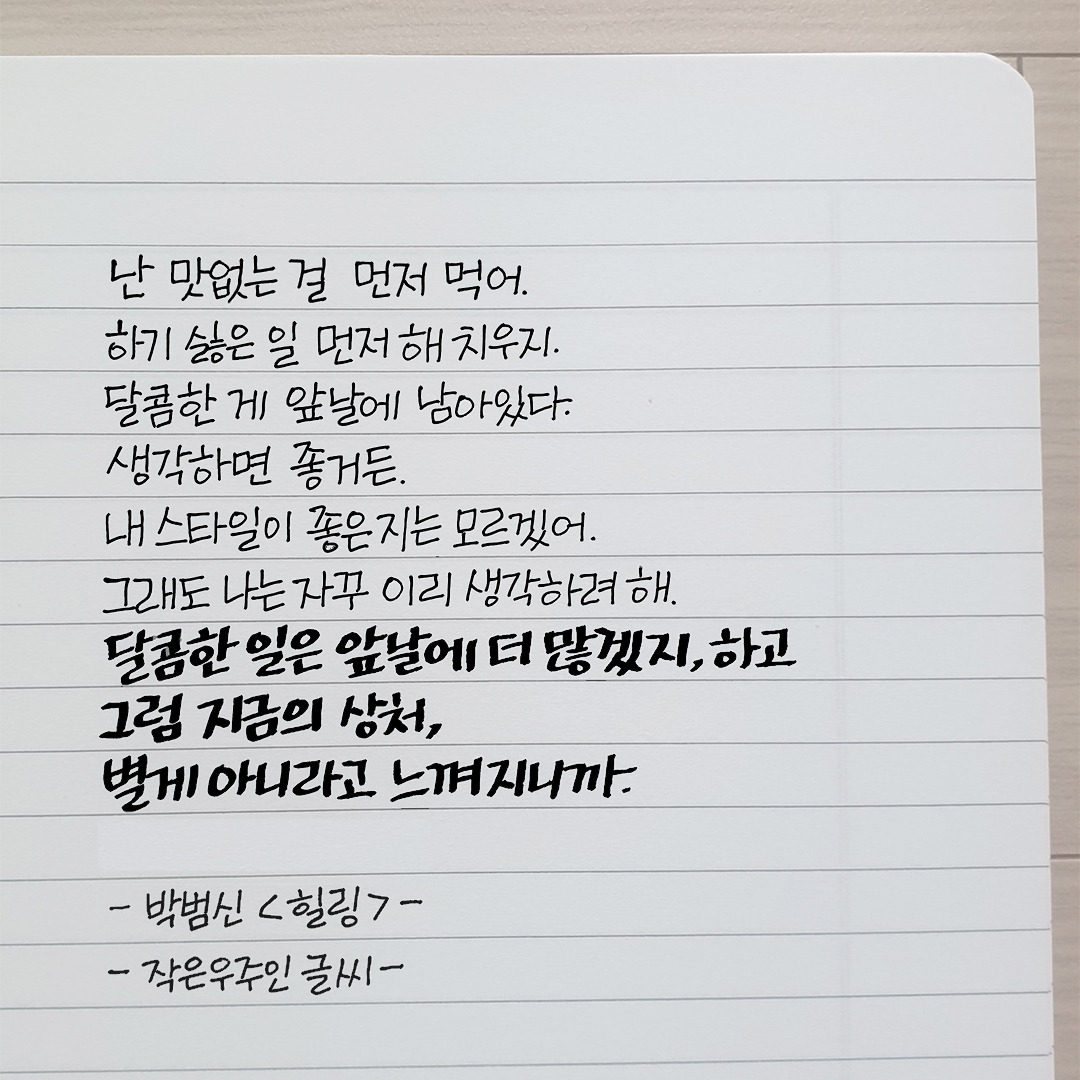 난 맛없는 걸 먼저 먹어.
하기 싫은 일 먼저 해 치우지.
달콤한 게 앞날에 남아있다.
생각하면 좋거든.
내 스타일이 좋은지는 모르겠어.
그래도 나는 자꾸 이리 생각하려 해.
달콤한 일은 앞날에 더 많겠지, 하고
그럼 지금의 상처,
별게 아니라고 느껴지니까.
- 박범신 <힐링> -
- 작은우주인 글씨 -